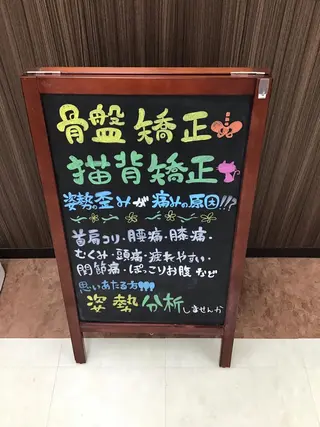 骨盤矯正
猫背矯正
姿勢の歪みが痛みの原因!!?
首肩コリ・腰痛・膝痛・
むくみ・頭痛・疲れやすい・
関節痛・ぽっこりお腹など
思いあたる方!!!
姿勢分析しませんか